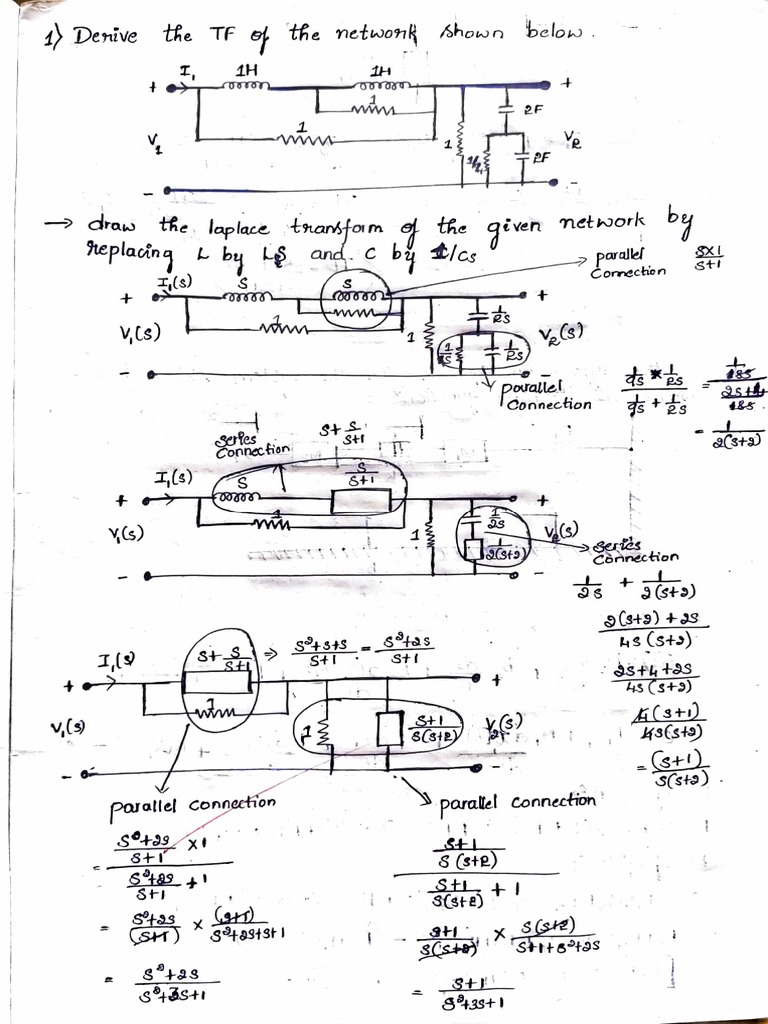 1) Derive the TF of the network shown below.
I₁ 1H 1H
+ +
1
1
V₁ 1 1/2 2F 2F V₂
- -
→ draw the laplace transform of the given network by
replacing L by LS and C by 1/Cs
I₁(s) S S parallel connection S×1/S+1
+ +
1
V₁(s) 1 1/2S 1/2S V₂(s)
- -
parallel connection
= 1/2(s+2)
series connection
S+ S/S+1
I₁(s) S S/S+1
+ +
1
V₁(s) 1 1/2S 1/2(s+2) V₂(s)
- -
series connection
1/2S + 1/2(s+2)
2(s+2)+2S / 4S(s+2)
2S+4+2S / 4S(s+2)
4(s+1) / 4S(s+2)
= (s+1) / S(s+2)
I₁(s) S+ S/S+1 ⇒ S²+S+S/S+1 = S²+2S/S+1
+ +
1
V₁(s) 1 S+1/S(S+2) V₂(s)
- -
parallel connection
= S²+2S/S+1 ×1 / S²+2S/S+1 +1
= S²+2S/(S+1) × (S+1)/S²+2S+S+1
= S²+2S / S²+3S+1
parallel connection
S+1/S(S+2) / S+1/S(S+2) + 1
S+1/S(S+2) × S(S+2)/S+1+S²+2S
= S+1 / S²+3S+1